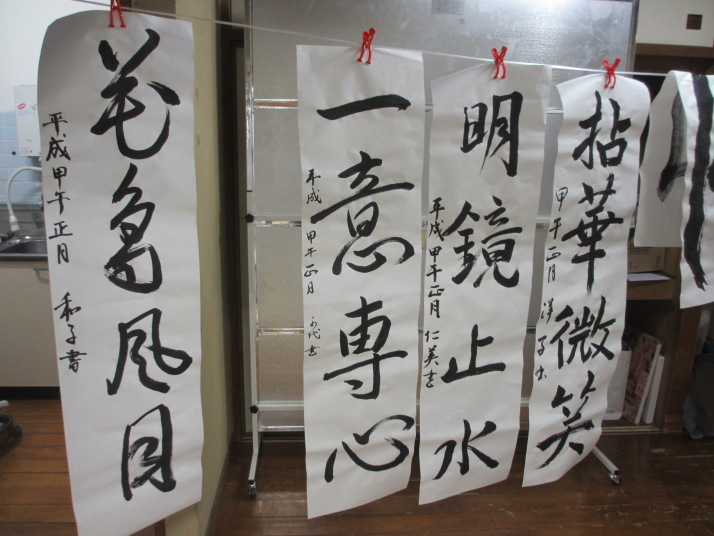 花鳥風月
平成甲午正月 和子書
一意専心
平成甲午正月
明鏡止水
平成甲午正月 仁美書
拈華微笑
甲午正月 洋子書